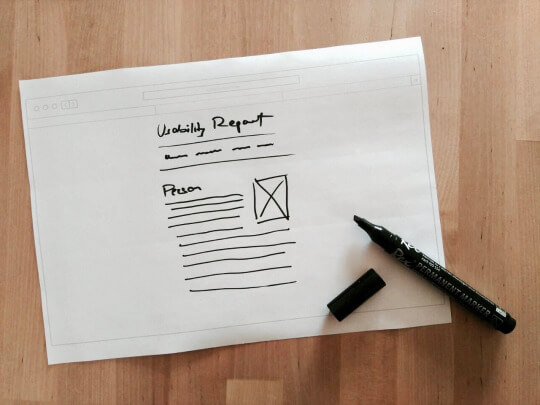 Usability Report
Person
Rec
PERMANENT MARKER